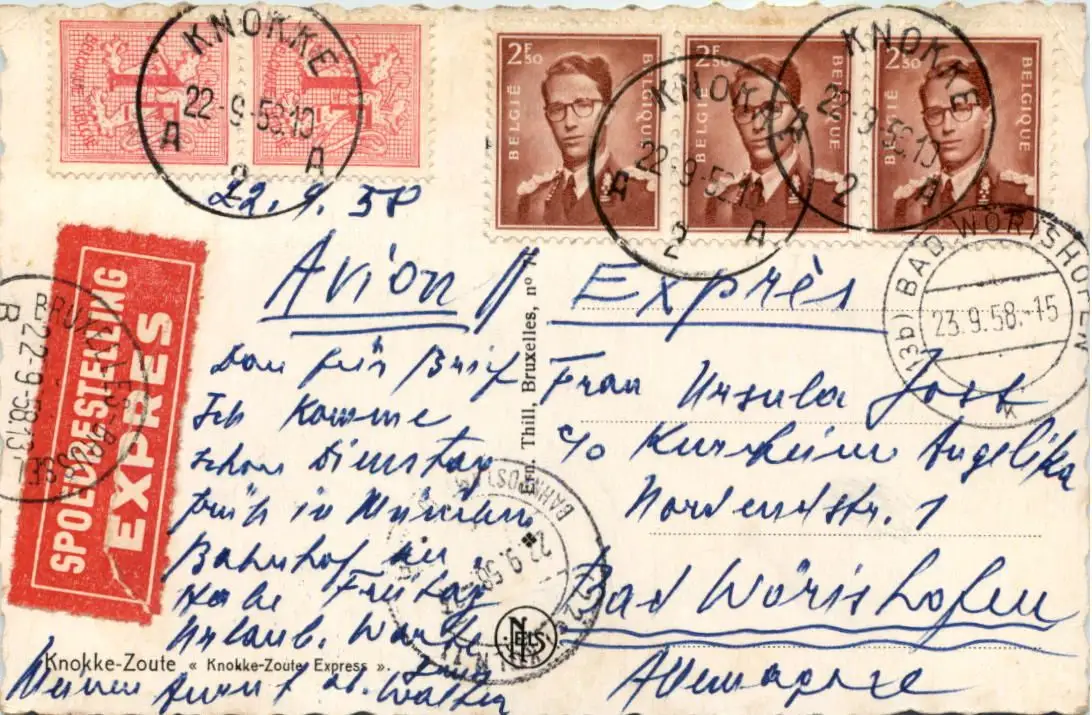 KNOKKE
22-9-58.10
A 2 A
1F
BELGIQUE BELGIE
KNOKKE
22-9-58.10
A 2 A
KNOKKE
22-9-58.10
2 A
2F50
BELGIË BELGIQUE
2F50
BELGIË BELGIQUE
2F50
BELGIË BELGIQUE
22.9.58
Avion Exprès
(13b) BAD WÖRISHOFEN
23.9.58.-15
K
SPOEDBESTELLING
EXPRES
BRUXELLES-BRUSSEL
22-9-58.13-
B
Dan für Brief
Ich komme
schon Dienstag
früh in München
Bahnhof an
Habe Freitag
Urlaub. Warte
Meine Ankunft ab. Walter
Ern. Thill, Bruxelles, nº 7
Frau Ursula Jost
c/o Kurheim Angelika
Nordendstr. 1
Bad Wörishofen
Allemagne
BAHNPOSTAMT
22.9.58
NELS
Knokke-Zoute « Knokke-Zoute Express ».